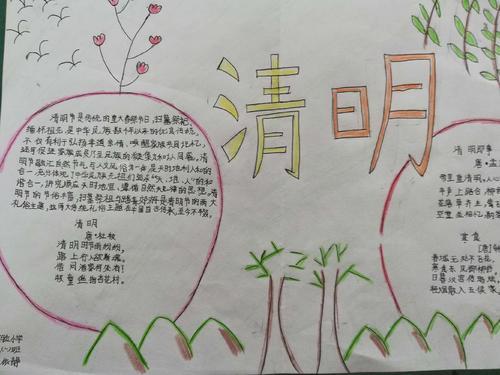 清明
清明节是传统的重大春祭节日,扫墓祭祀、
缅怀祖先,是中华民族数千年以来的优良传统,
不仅有利于弘扬孝道亲情、唤醒家族共同记忆,
还可促进家族成员乃至民族的凝聚力和认同感。清
明节融汇自然节气与人文风俗为一体,是天时地利人和的
合一,充分体现了中华民族先祖们追求“天、地、人”的和
谐合一,讲究顺应天时地宜、遵循自然规律的思想。清
明节的节俗丰富,扫墓祭祖与踏青郊游是清明节的两大
礼俗主题,这两大传统礼俗主题在中国自古传承,至今不辍。
清明
唐·杜牧
清明时节雨纷纷,
路上行人欲断魂。
借问酒家何处有?
牧童遥指杏花村。
清明即事
唐·孟
帝里重清明,人心
车声上路合,柳
花落草齐生,莺
空堂坐相忆,酌
寒食
[唐]韩
春城无处不飞花,
寒食东风御柳斜
日暮汉宫传蜡烛,
轻烟散入五侯家
小学